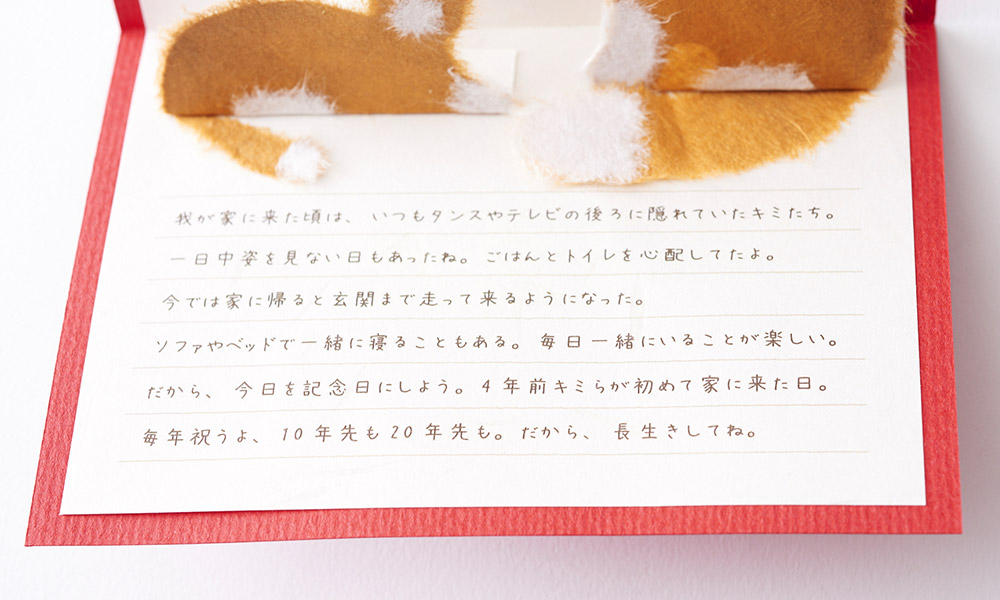 我が家に来た頃は、いつもタンスやテレビの後ろに隠れていたキミたち。
一日中姿を見ない日もあったね。ごはんとトイレを心配してたよ。
今では家に帰ると玄関まで走って来るようになった。
ソファやベッドで一緒に寝ることもある。毎日一緒にいることが楽しい。
だから、今日を記念日にしよう。4年前キミらが初めて家に来た日。
毎年祝うよ、10年先も20年先も。だから、長生きしてね。